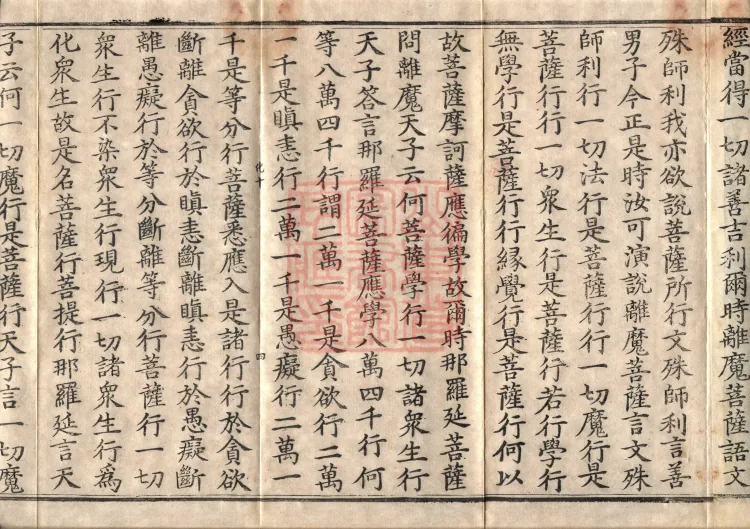 經當得一切諸善吉利爾時離魔菩薩語文
殊師利我亦欲說菩薩所行文殊師利言善
男子今正是時汝可演說離魔菩薩言文殊
師利行一切法行是菩薩行行一切魔行是
菩薩行行一切眾生行是菩薩行若行學行
無學行是菩薩行行緣覺行是菩薩行何以
故菩薩摩訶薩應徧學故爾時那羅延菩薩
問離魔天子云何菩薩學行一切諸眾生行
天子答言那羅延菩薩應學八萬四千行何
等八萬四千行謂二萬一千是貪欲行二萬
一千是瞋恚行二萬一千是愚癡行二萬一
化十
四
千是等分行菩薩悉應入是諸行行於貪欲
斷離貪欲行於瞋恚斷離瞋恚行於愚癡斷
離愚癡行於等分斷離等分行菩薩行一切
眾生行不染眾生行現行一切諸眾生行為
化眾生故是名菩薩行菩提行那羅延言天
子云何一切魔行是菩薩行天子言一切魔